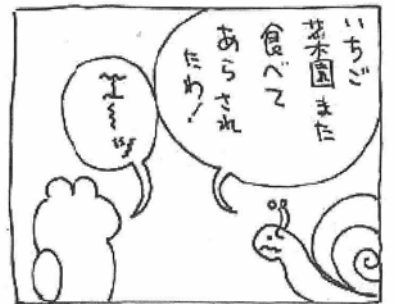 いちご
菜園また
食べて
あらされ
たわ！
エーッ